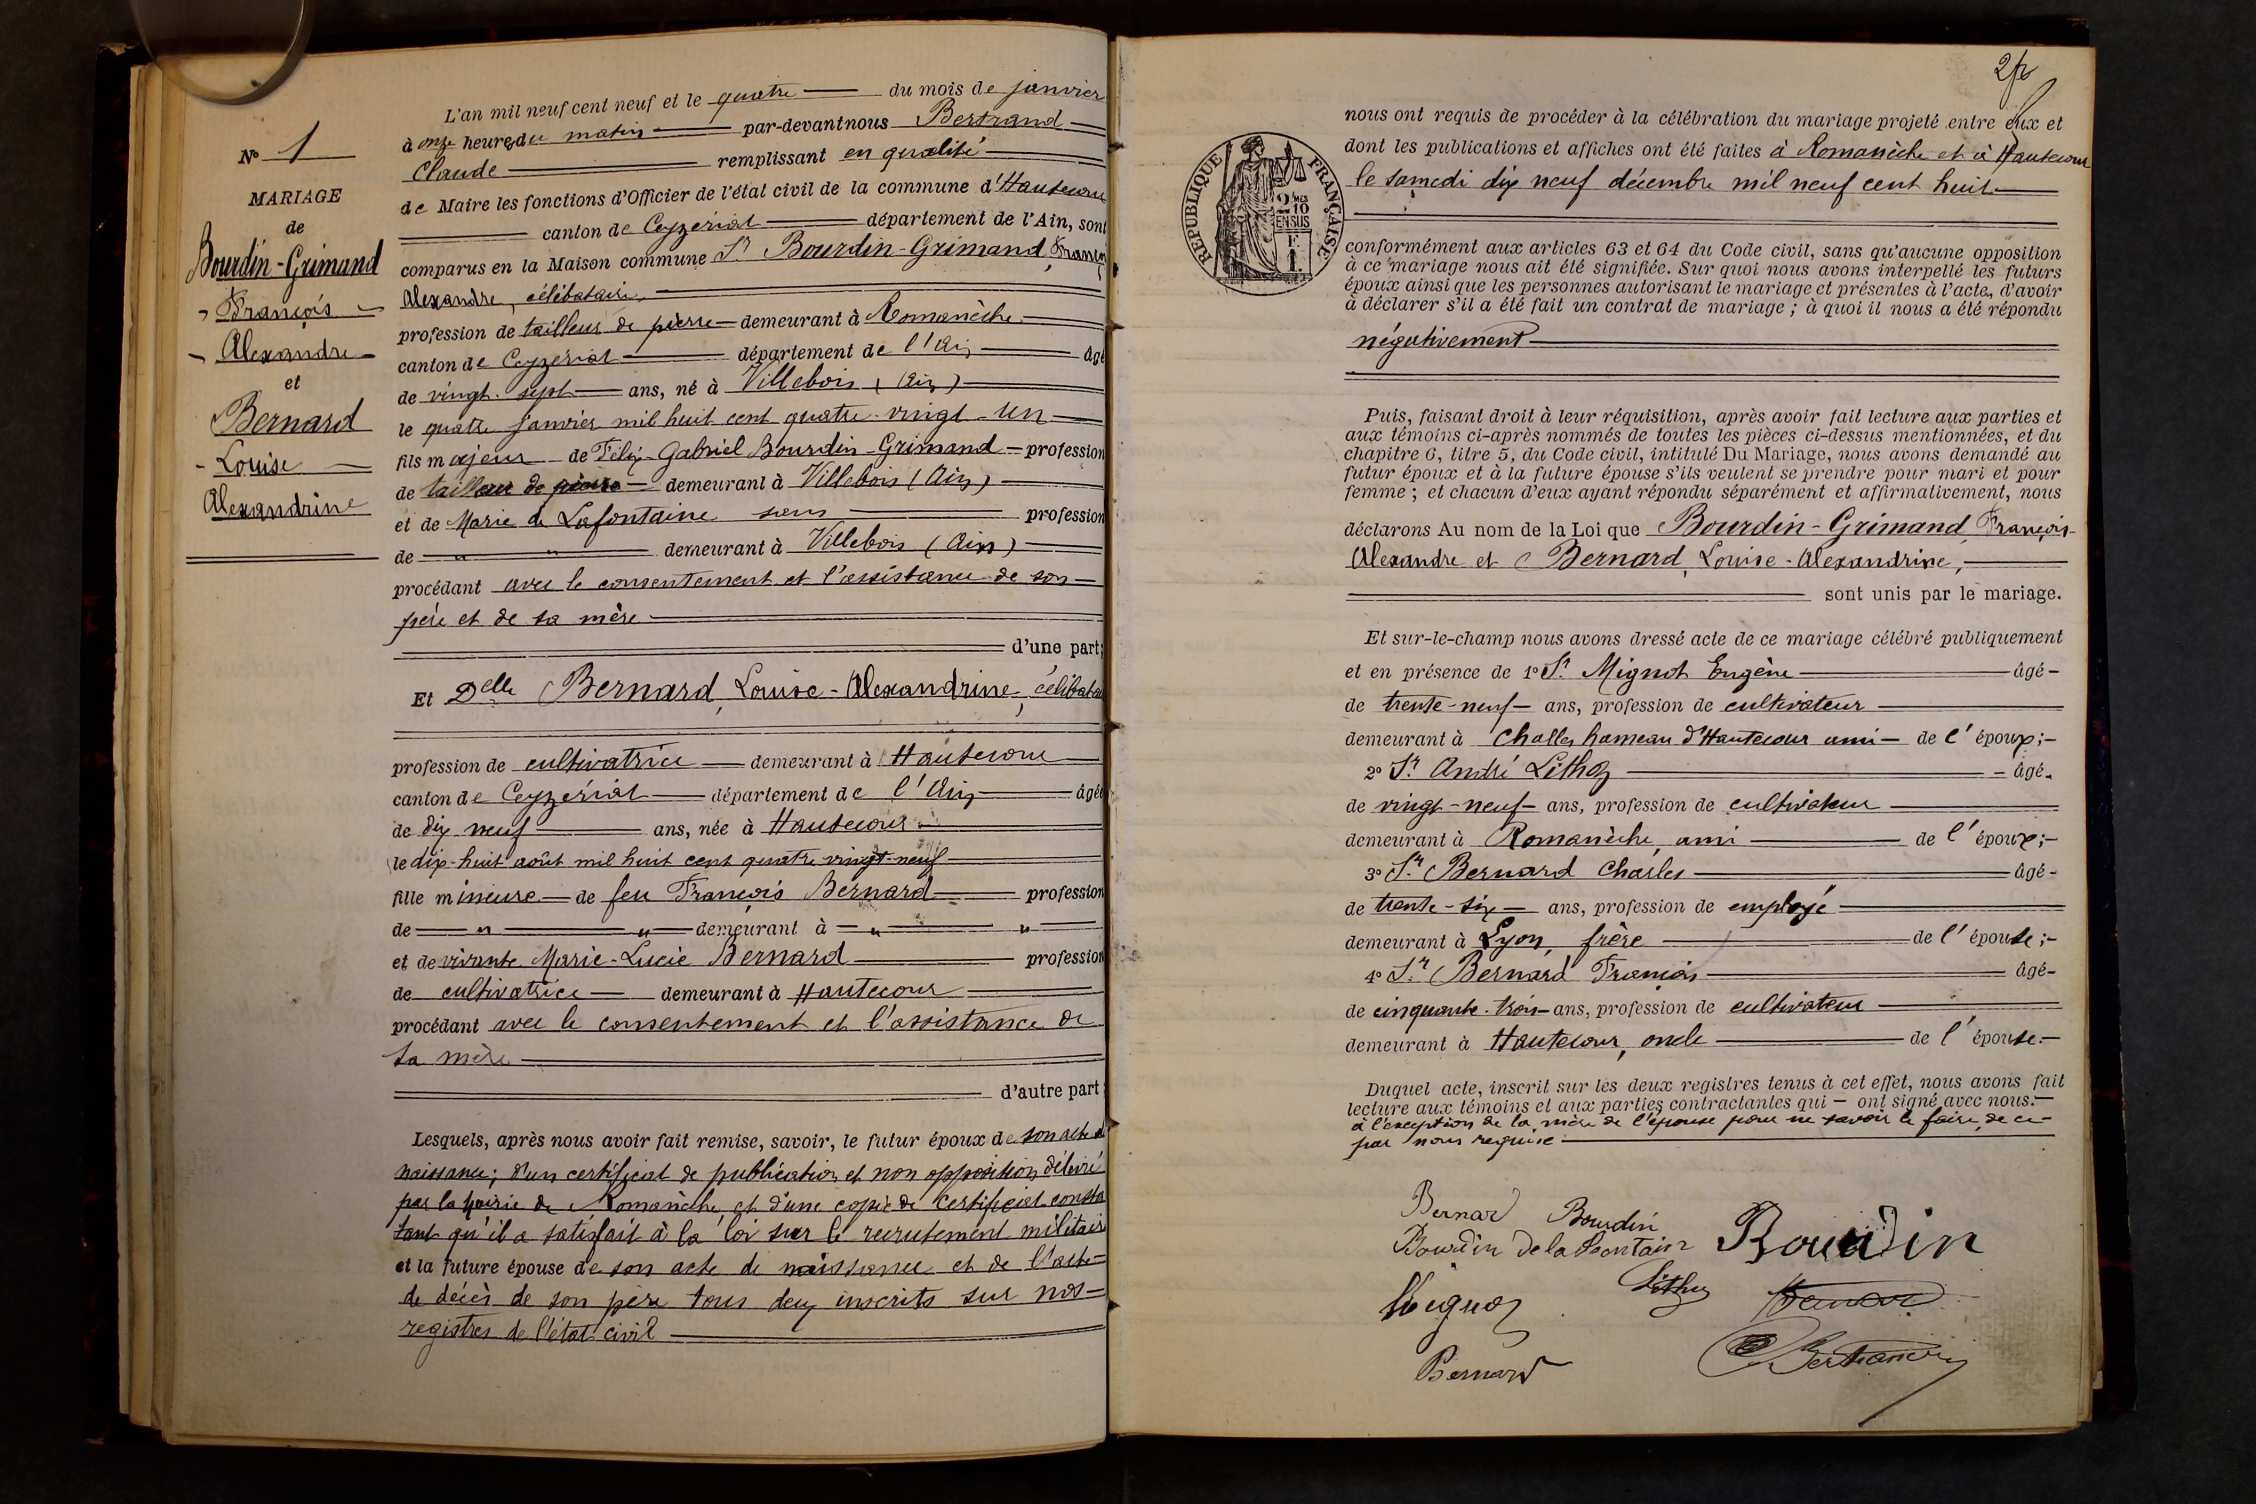 N° 1
MARIAGE
de
Bourdin-Grimand
François
Alexandre
et
Bernard
Louise
Alexandrine
L'an mil neuf cent neuf et le quatre du mois de janvier
à onze heures du matin par-devant nous Bertrand
Claude remplissant en qualité
de Maire les fonctions d'Officier de l'état civil de la commune d'Hautecour
canton de Ceyzériat département de l'Ain, sont
comparus en la Maison commune Sr Bourdin-Grimand, François
Alexandre, célibataire,
profession de tailleur de pierre demeurant à Romanèche
canton de Ceyzériat département de l'Ain âgé
de vingt-sept ans, né à Villebois (Ain)
le quatre janvier mil huit cent quatre-vingt-un
fils majeur de Félix-Gabriel Bourdin-Grimand profession
de tailleur de pierre demeurant à Villebois (Ain)
et de Marie de Lafontaine sans profession
de " " demeurant à Villebois (Ain)
procédant avec le consentement et l'assistance de son
père et de sa mère
d'une part;
Et Delle Bernard, Louise-Alexandrine, célibataire
profession de cultivatrice demeurant à Hautecour
canton de Ceyzériat département de l'Ain âgée
de dix neuf ans, née à Hautecour
le dix-huit août mil huit cent quatre vingt-neuf
fille mineure de feu François Bernard profession
de " " demeurant à " "
et de vivante Marie-Lucie Bernard profession
de cultivatrice demeurant à Hautecour
procédant avec le consentement et l'assistance de
sa mère
d'autre part;
Lesquels, après nous avoir fait remise, savoir, le futur époux de son acte de
naissance; d'un certificat de publication et non opposition délivré
par la mairie de Romanèche et d'une copie de certificat consta
tant qu'il a satisfait à la loi sur le recrutement militaire
et la future épouse de son acte de naissance et de l'acte
de décès de son père tous deux inscrits sur nos
registres de l'état civil
REPUBLIQUE FRANÇAISE
2 MES
10
EN SUS
nous ont requis de procéder à la célébration du mariage projeté entre eux et
dont les publications et affiches ont été faites à Romanèche et à Hautecour
le samedi dix neuf décembre mil neuf cent huit
conformément aux articles 63 et 64 du Code civil, sans qu'aucune opposition
à ce mariage nous ait été signifiée. Sur quoi nous avons interpellé les futurs
époux ainsi que les personnes autorisant le mariage et présentes à l'acte, d'avoir
à déclarer s'il a été fait un contrat de mariage ; à quoi il nous a été répondu
négativement
Puis, faisant droit à leur réquisition, après avoir fait lecture aux parties et
aux témoins ci-après nommés de toutes les pièces ci-dessus mentionnées, et du
chapitre 6, titre 5, du Code civil, intitulé Du Mariage, nous avons demandé au
futur époux et à la future épouse s'ils veulent se prendre pour mari et pour
femme ; et chacun d'eux ayant répondu séparément et affirmativement, nous
déclarons Au nom de la Loi que Bourdin-Grimand, François-
Alexandre et Bernard, Louise-Alexandrine,
sont unis par le mariage.
Et sur-le-champ nous avons dressé acte de ce mariage célébré publiquement
et en présence de 1° Sr Mignot Eugène âgé
de trente-neuf ans, profession de cultivateur
demeurant à Challes hameau d'Hautecour ami de l'époux;
2° Sr André Lithoz âgé
de vingt-neuf ans, profession de cultivateur
demeurant à Romanèche, ami de l'époux;
3° Sr Bernard Charles âgé
de trente-six ans, profession de employé
demeurant à Lyon, frère de l'épouse;
4° Sr Bernard François âgé
de cinquante-trois ans, profession de cultivateur
demeurant à Hautecour, oncle de l'épouse.
Duquel acte, inscrit sur les deux registres tenus à cet effet, nous avons fait
lecture aux témoins et aux parties contractantes qui ont signé avec nous.
à l'exception de la mère de l'épouse pour ne savoir le faire, de ce
par nous requise
Bernard Bourdin
Bourdin Delafontaine Bourdin
Mignot Lithoz
Bernard Bertrand